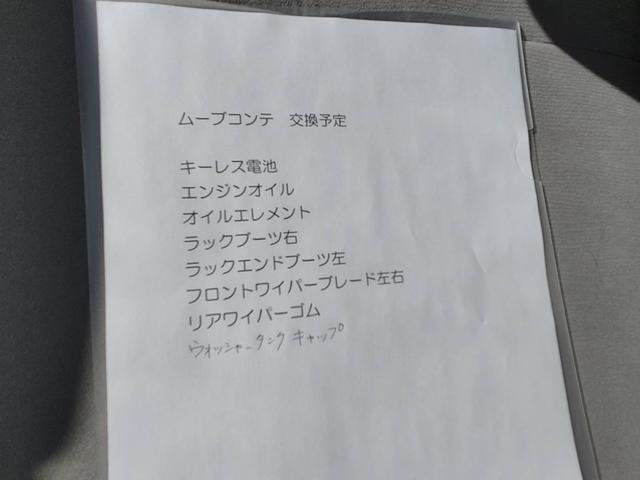 ムーブコンテ　交換予定
キーレス電池
エンジンオイル
オイルエレメント
ラックブーツ右
ラックエンドブーツ左
フロントワイパーブレード左右
リアワイパーゴム
ウォッシャータンクキャップ